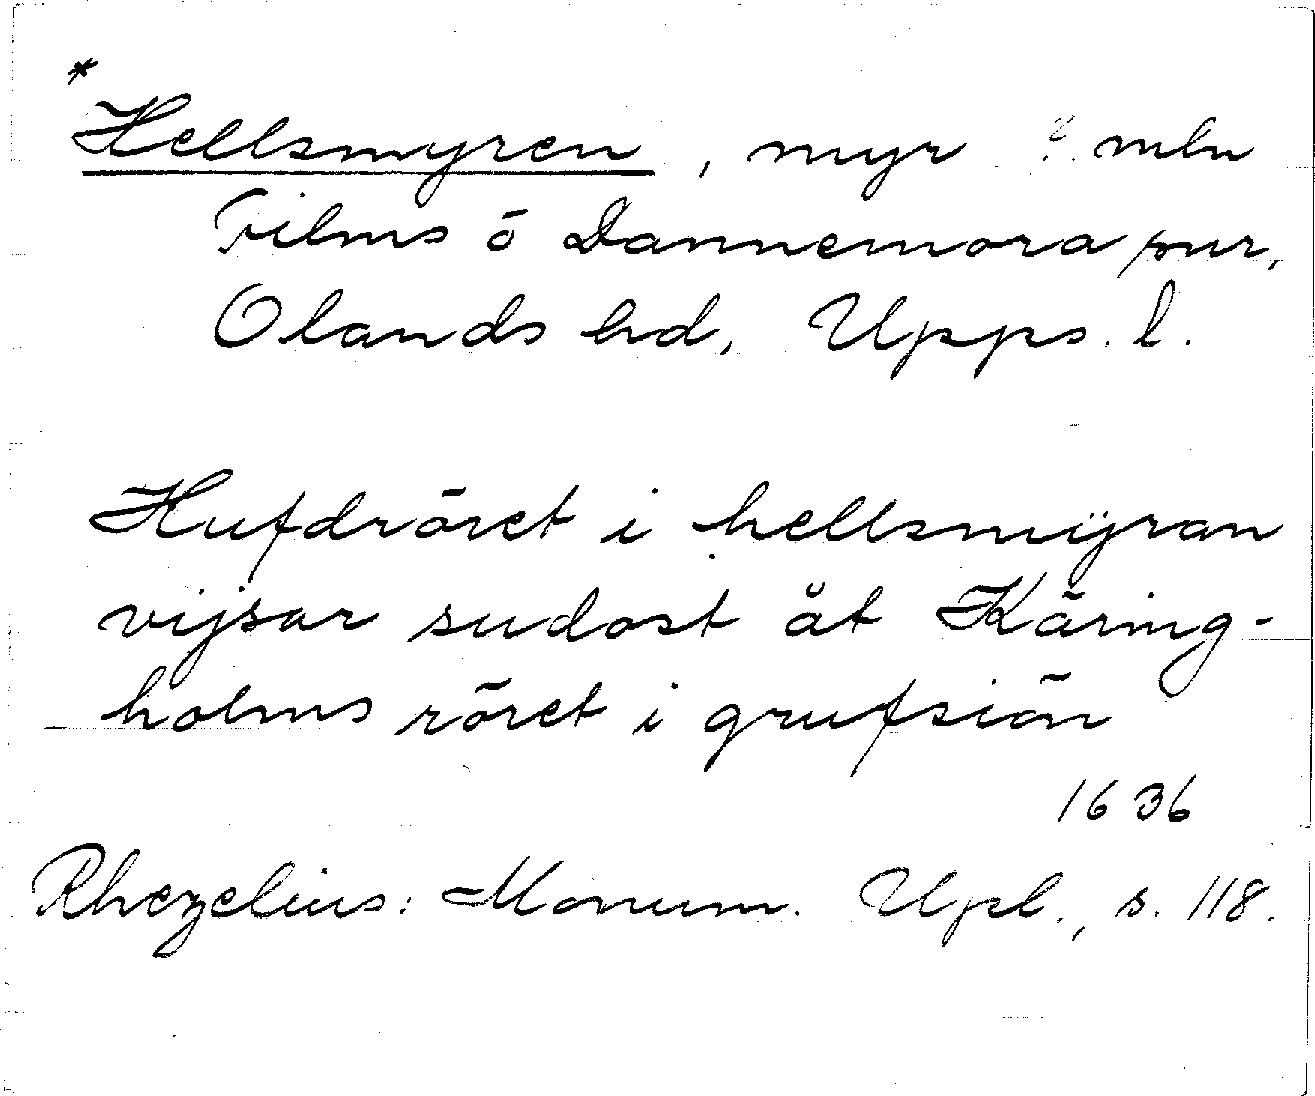 *
Hellsmyren, myr ? mln
Films ō Dannemora snr,
Olands hd, Upps. l.
Hufdrōret i hellsmÿran
vijsar sudost åt Kāring-
holms rōret i grufsiōn
1636
Rhezelius: Monum. Upl., s. 118.